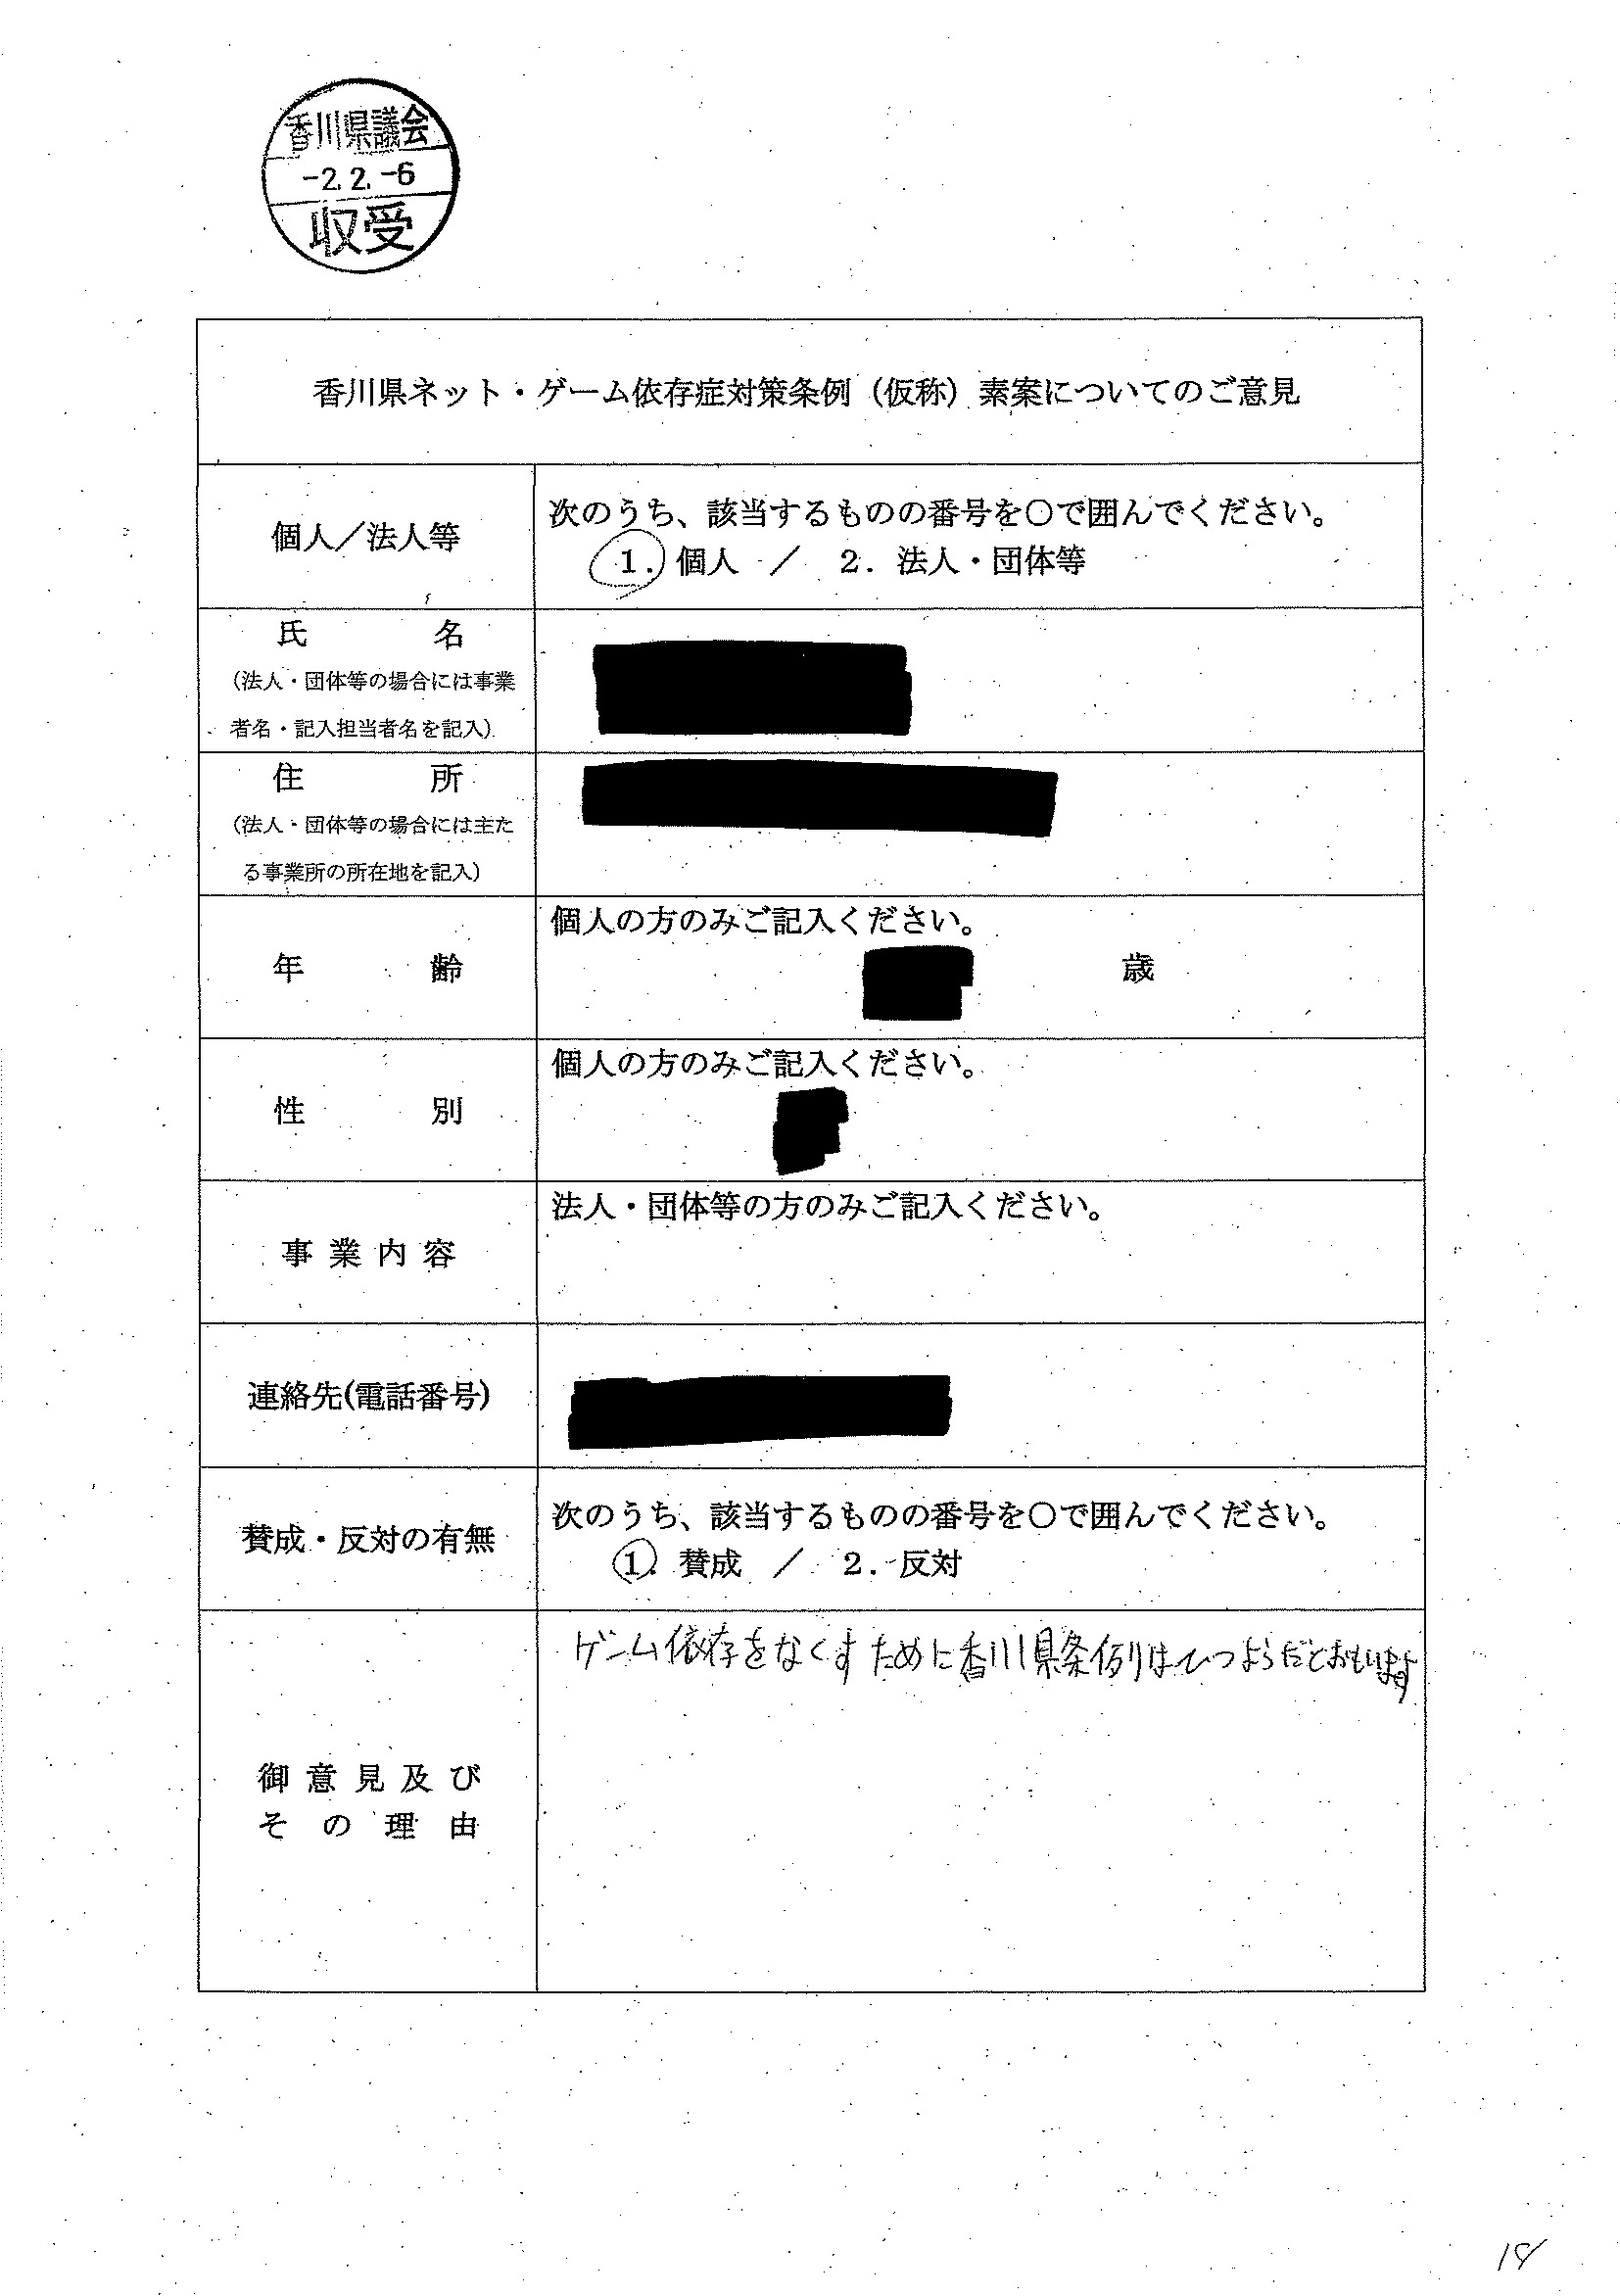 香川県議会
-2.2.-6
収受
香川県ネット・ゲーム依存症対策条例（仮称）素案についてのご意見
個人／法人等
次のうち、該当するものの番号を〇で囲んでください。
1. 個人 ／ 2. 法人・団体等
氏 名
（法人・団体等の場合には事業
者名・記入担当者名を記入）
住 所
（法人・団体等の場合には主た
る事業所の所在地を記入）
年 齢
個人の方のみご記入ください。
歳
性 別
個人の方のみご記入ください。
事 業 内 容
法人・団体等の方のみご記入ください。
連絡先(電話番号)
賛成・反対の有無
次のうち、該当するものの番号を〇で囲んでください。
1. 賛成 ／ 2. 反対
御 意 見 及 び
そ の 理 由
ゲーム依存をなくすために香川県条例はひつようだとおもいます
18